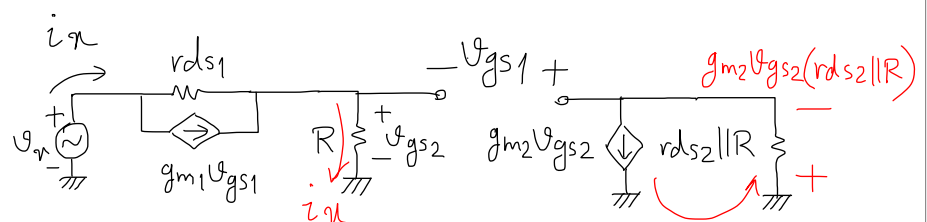 ix
rds1
− vgs1 +
gm2vgs2(rds2||R)
−
+
vx
−
gm1vgs1
R
+
vgs2
−
ix
gm2vgs2
rds2||R
+